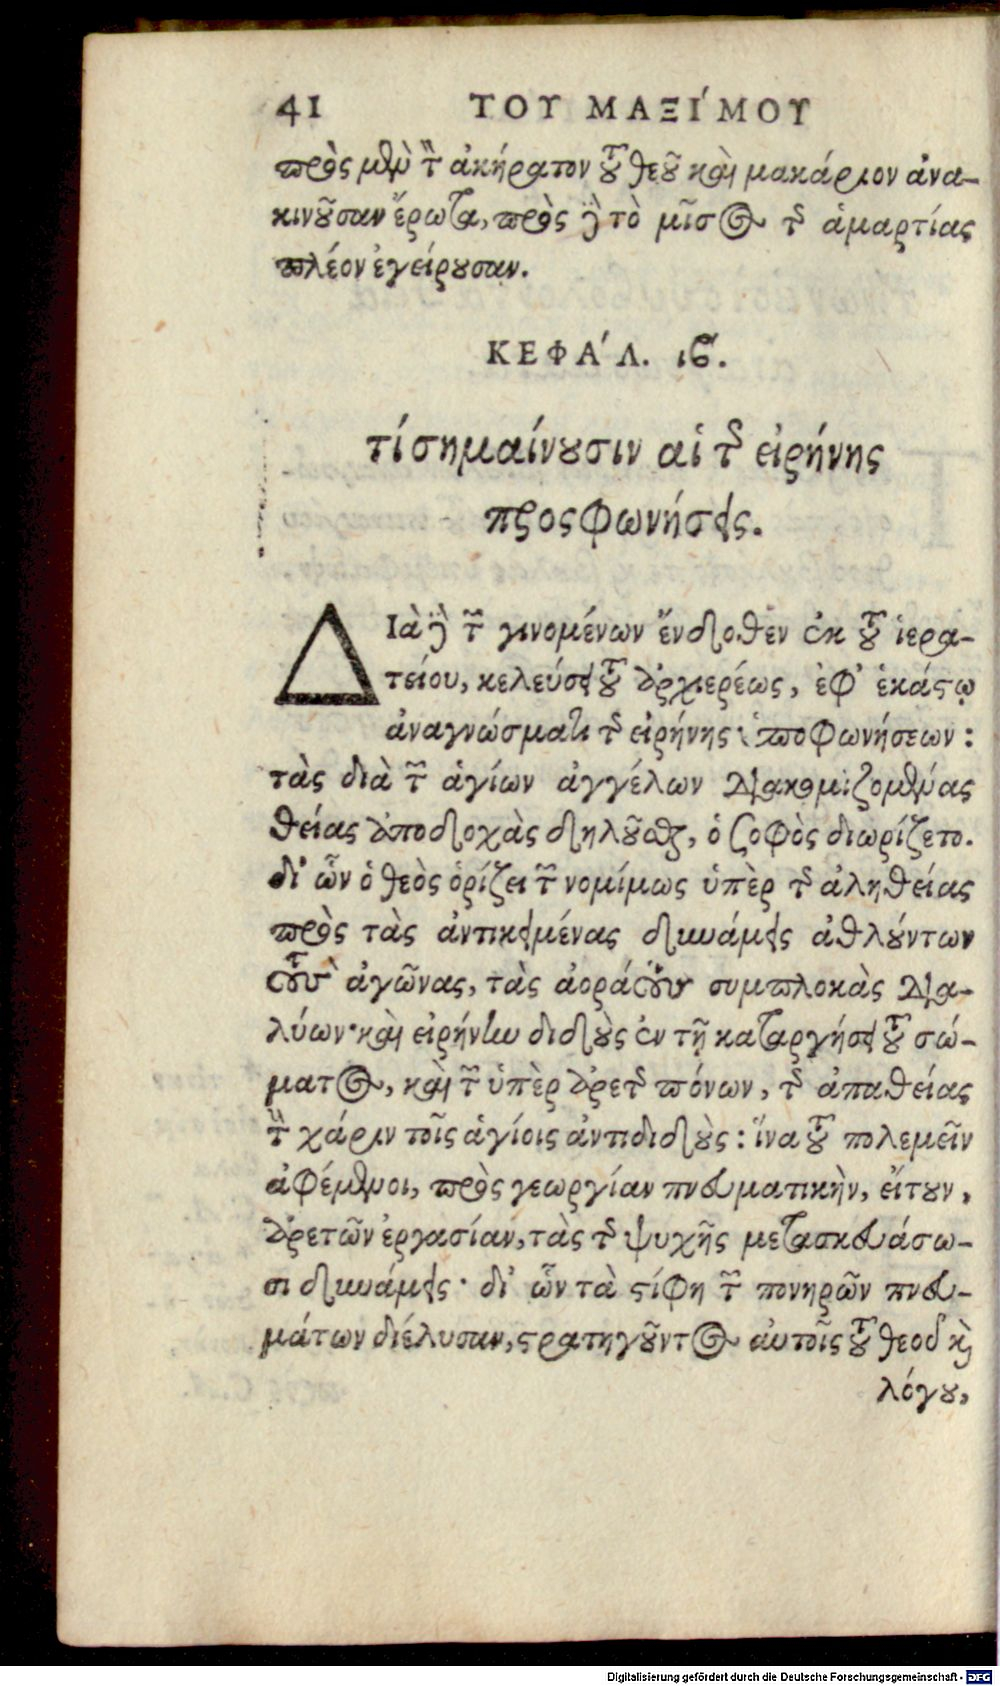 41 ΤΟΥ ΜΑΞΙ´ΜΟΥ
πρὸς μὲν τὸν ἀκήρατον τοῦ θεοῦ καὶ μακάριον ἀνα-
κινοῦσαν ἔρωτα, πρὸς δὲ τὸ μῖσος τῆς ἁμαρτίας
πλέον ἐγείρουσαν.
ΚΕΦΑ´Λ. ιϛ.
τί σημαίνουσιν αἱ τῆς εἰρήνης
προσφωνήσεις.
ΔΙὰ δὲ τῶν γινομένων ἔνδοθεν ἐκ τοῦ ἱερα-
τείου, κελεύσει τοῦ ἀρχιερέως, ἐφ' ἑκάστῳ
ἀναγνώσματι τῆς εἰρήνης ὑποφωνήσεων:
τὰς διὰ τῶν ἁγίων ἀγγέλων διακομιζομένας
θείας ἀποδοχὰς δηλοῦσθαι, ὁ σοφὸς διωρίζετο.
δι' ὧν ὁ θεὸς ὁρίζει τῶν νομίμως ὑπὲρ τῆς ἀληθείας
πρὸς τὰς ἀντικειμένας δυνάμεις ἀθλούντων
τοὺς ἀγῶνας, τὰς ἀοράτους συμπλοκὰς δια-
λύων· καὶ εἰρήνην διδοὺς ἐν τῇ καταργήσει τοῦ σώ-
ματος, καὶ τῶν ὑπὲρ ἀρετῆς πόνων, τῆς ἀπαθείας
τὴν χάριν τοῖς ἁγίοις ἀντιδιδοὺς: ἵνα τοῦ πολεμεῖν
ἀφέμενοι, πρὸς γεωργίαν πνευματικὴν, εἴτουν,
ἀρετῶν ἐργασίαν, τὰς τῆς ψυχῆς μετασκευάσω-
σι δυνάμεις· δι' ὧν τὰ στίφη τῶν πονηρῶν πνευ-
μάτων διέλυσαν, στρατηγοῦντος αὐτοῖς τοῦ θεοῦ καὶ
λόγου,
Digitalisierung gefördert durch die Deutsche Forschungsgemeinschaft - DFG